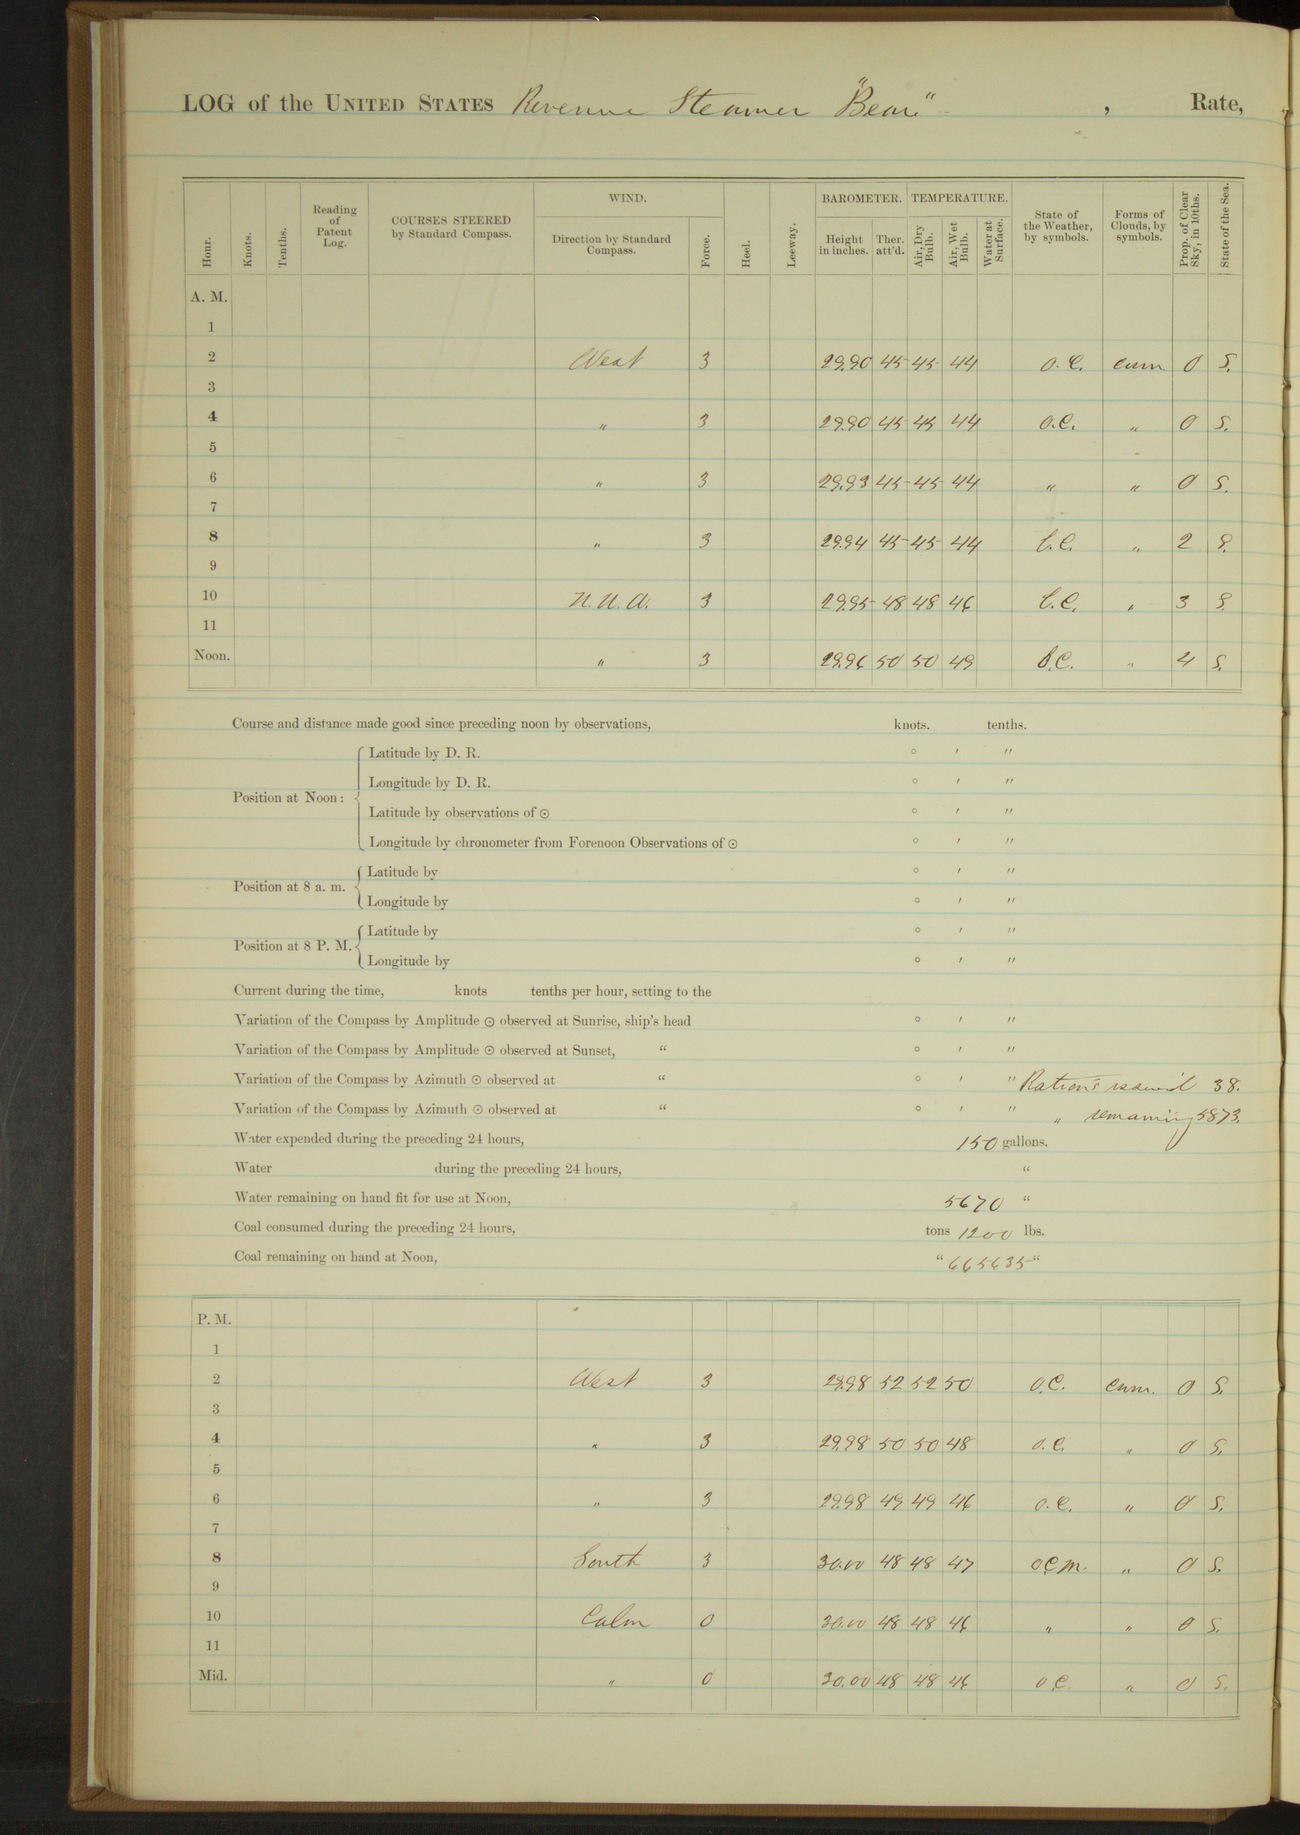 LOG of the UNITED STATES Revenue Steamer "Bear" , Rate,
WIND. BAROMETER. TEMPERATURE.
Hour. Knots. Tenths. Reading of Patent Log. COURSES STEERED by Standard Compass. Direction by Standard Compass. Force. Heel. Leeway. Height in inches. Ther. att'd. Air, Dry Bulb. Air, Wet Bulb. Water at Surface. State of the Weather, by symbols. Forms of Clouds, by symbols. Prop. of Clear Sky, in 10ths. State of the Sea.
A. M.
1
2 West 3 29.90 45 45 44 O.C. cum 0 S.
3
4 " 3 29.90 45 45 44 O.C. " 0 S.
5
6 " 3 29.93 45 45 44 " " 0 S.
7
8 " 3 29.94 45 45 44 b.C. " 2 S.
9
10 3 29.95 48 48 46 b.C. " 3 S.
11
Noon. " 3 29.96 50 50 49 b.C. " 4 S.
Course and distance made good since preceding noon by observations, knots. tenths.
Position at Noon: Latitude by D. R. ° ′ ″
Longitude by D. R. ° ′ ″
Latitude by observations of ☉ ° ′ ″
Longitude by chronometer from Forenoon Observations of ☉ ° ′ ″
Position at 8 a. m. Latitude by ° ′ ″
Longitude by ° ′ ″
Position at 8 P. M. Latitude by ° ′ ″
Longitude by ° ′ ″
Current during the time, knots tenths per hour, setting to the
Variation of the Compass by Amplitude ☉ observed at Sunrise, ship's head ° ′ ″
Variation of the Compass by Amplitude ☉ observed at Sunset, " ° ′ ″
Variation of the Compass by Azimuth ☉ observed at " ° ′ ″ Rations 38.
Variation of the Compass by Azimuth ☉ observed at " ° ′ ″ " remaining 5873.
Water expended during the preceding 24 hours, 150 gallons.
Water during the preceding 24 hours, "
Water remaining on hand fit for use at Noon, 5670 "
Coal consumed during the preceding 24 hours, tons 1200 lbs.
Coal remaining on hand at Noon, " 665635 "
P. M.
1
2 West 3 29.98 52 52 50 O.C. cum. 0 S.
3
4 " 3 29.98 50 50 48 O.C. " 0 S.
5
6 " 3 29.98 49 49 46 O.C. " 0 S.
7
8 South 3 30.00 48 48 47 O.C.M. " 0 S.
9
10 Calm 0 30.00 48 48 46 " " 0 S.
11
Mid. " 0 30.00 48 48 46 O.C. " 0 S.